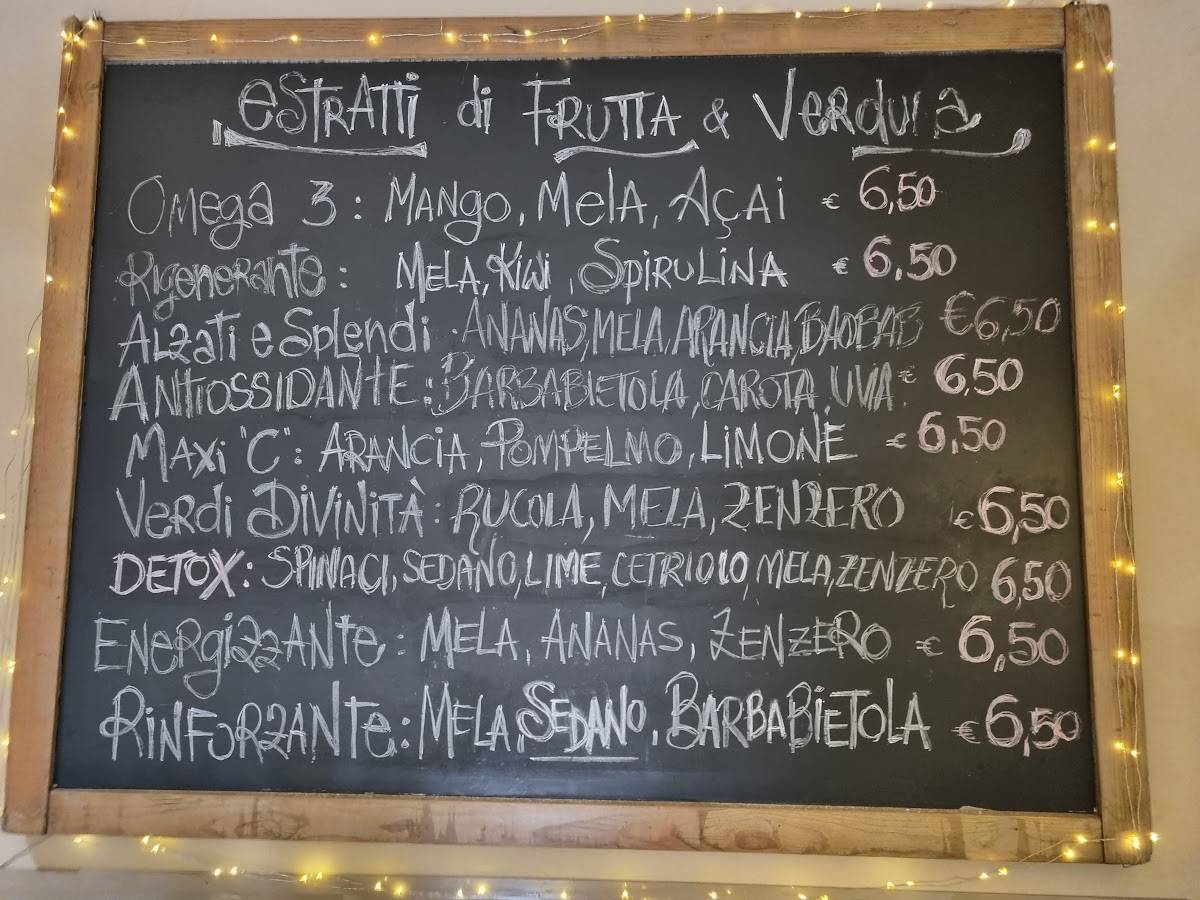 eSTRATTi di FRUTTA & VeRduRa
Omega 3: MANgo, Mela, Açai € 6,50
Rigenerante: Mela, Kiwi, Spirulina € 6,50
Alzati e Splendi: ANANAS, MELA, ARANCIA, BAOBAB €6,50
ANTIOSSIDANTE: BARBABIETOLA, CAROTA, UVA € 6,50
Maxi "C": ARANCIA, POMPELMO, LIMONE € 6,50
Verdi Divinità: RUCOLA, MELA, ZENZERO € 6,50
DETOX: SPINACI, SEDANO, LIME, CETRIOLO, MELA, ZENZERO 6,50
Energizzante: MELA, ANANAS, ZENZERO € 6,50
RINFORZANTE: MELA, SEDANO, BARBABIETOLA € 6,50